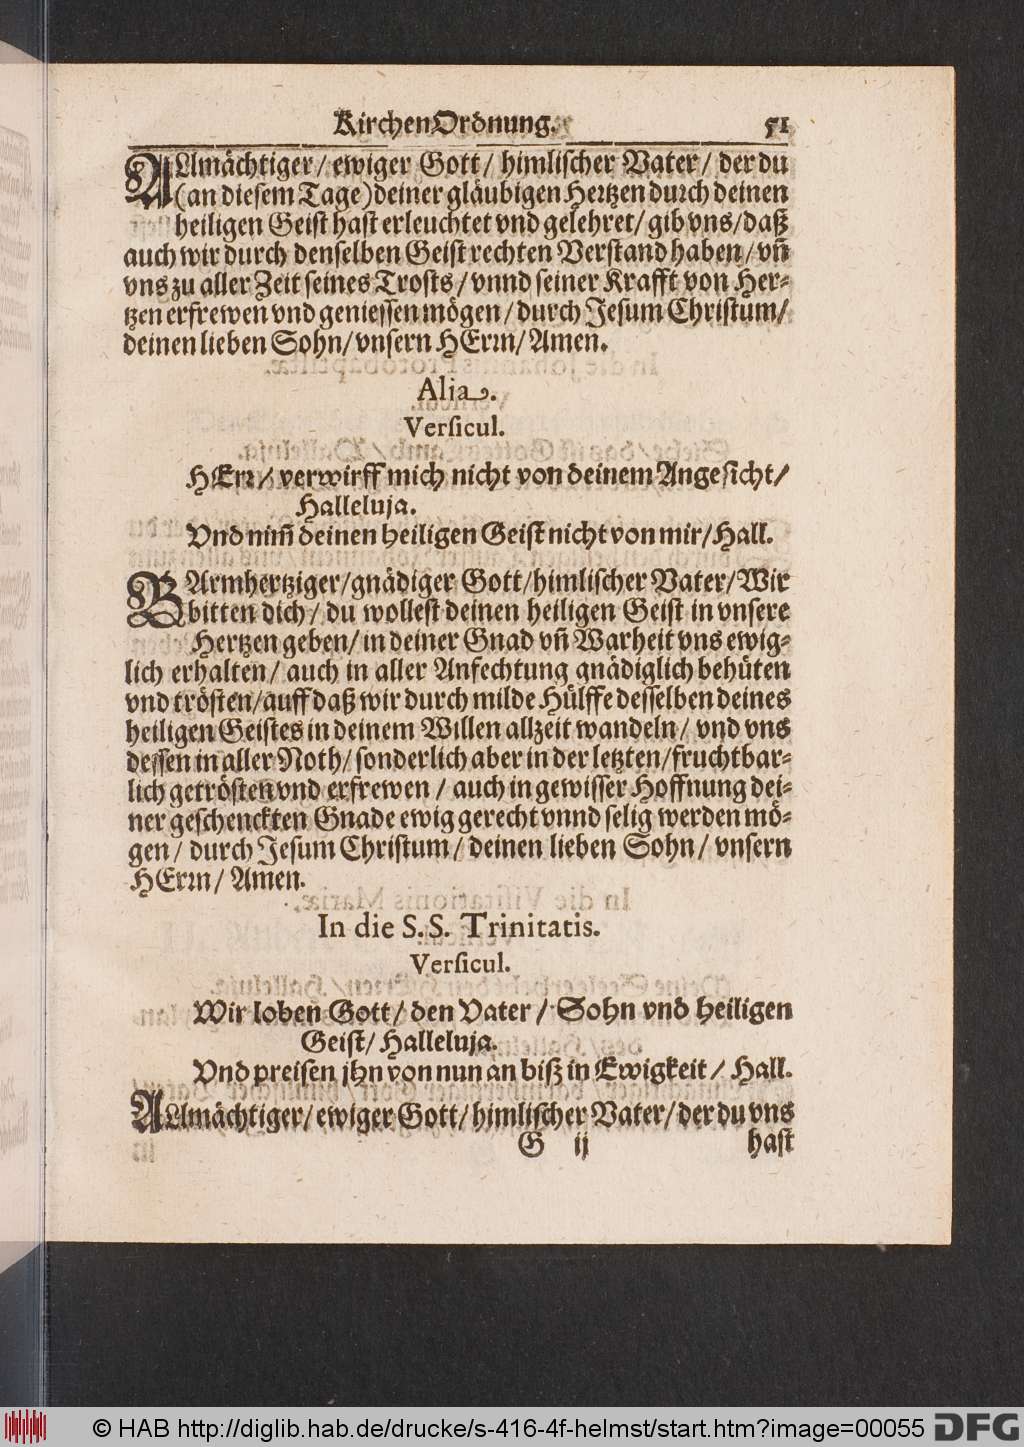 KirchenOrdnung. 51
ALlmächtiger/ ewiger Gott/ himlischer Vater/ der du
(an diesem Tage) deiner gläubigen Hertzen durch deinen
heiligen Geist hast erleuchtet vnd gelehret/ gib vns/ daß
auch wir durch denselben Geist rechten Verstand haben/ vñ
vns zu aller Zeit seines Trosts/ vnnd seiner Krafft von Her-
tzen erfrewen vnd geniessen mögen/ durch Jesum Christum/
deinen lieben Sohn/ vnsern HErrn/ Amen.
Alia.
Versicul.
HErr/ verwirff mich nicht von deinem Angesicht/
Halleluja.
Vnd nim̃ deinen heiligen Geist nicht von mir/ Hall.
BArmhertziger/ gnädiger Gott/ himlischer Vater/ Wir
bitten dich/ du wollest deinen heiligen Geist in vnsere
Hertzen geben/ in deiner Gnad vñ Warheit vns ewig-
lich erhalten/ auch in aller Anfechtung gnädiglich behüten
vnd trösten/ auff daß wir durch milde Hülffe desselben deines
heiligen Geistes in deinem Willen allzeit wandeln/ vnd vns
dessen in aller Noth/ sonderlich aber in der letzten/ fruchtbar-
lich getrösten vnd erfrewen/ auch in gewisser Hoffnung dei-
ner geschenckten Gnade ewig gerecht vnnd selig werden mö-
gen/ durch Jesum Christum/ deinen lieben Sohn/ vnsern
HErrn/ Amen.
In die S. S. Trinitatis.
Versicul.
Wir loben Gott/ den Vater/ Sohn vnd heiligen
Geist/ Halleluja.
Vnd preisen jhn von nun an biß in Ewigkeit/ Hall.
ALlmächtiger/ ewiger Gott/ himlischer Vater/ der du vns
G ij hast
© HAB http://diglib.hab.de/drucke/s-416-4f-helmst/start.htm?image=00055 DFG